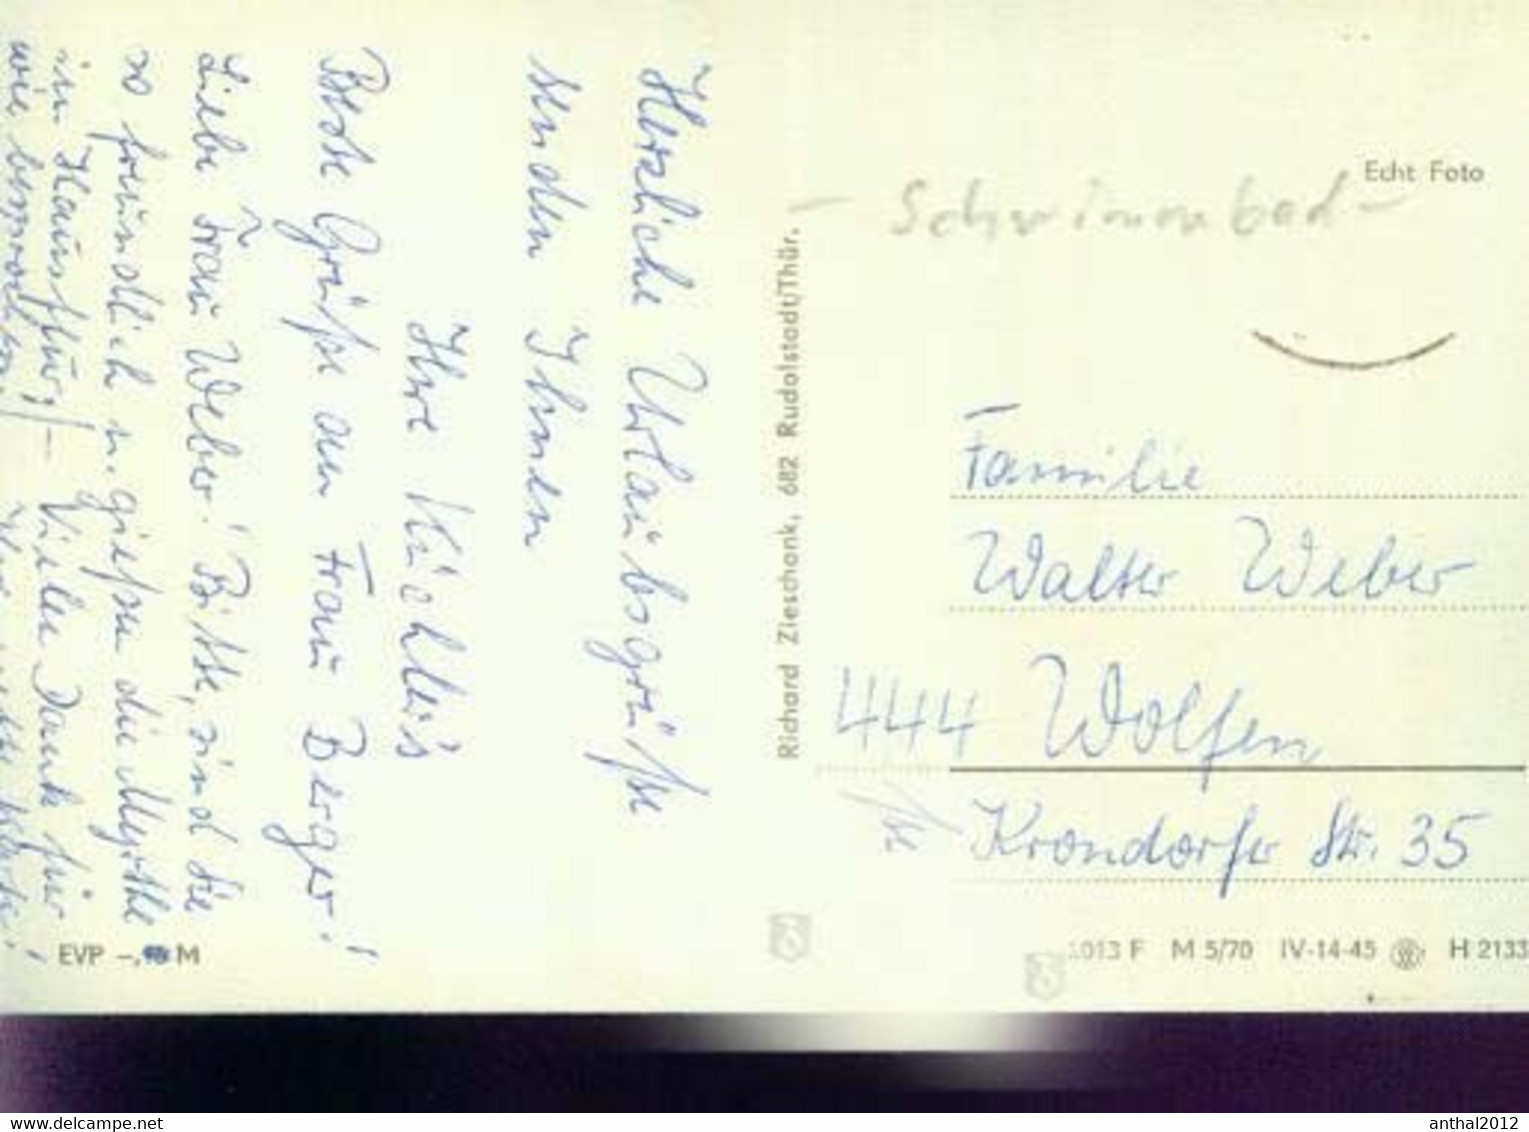 Herzliche Urlaubsgrüße
senden Ihnen
Ihre Küchler's
Beste Grüße an Frau Berger!
Liebe Frau Weber! Bitte, sind Sie
so freundlich u. gießen die Myrthe
im Hausflur, – Vielen Dank für
wie besprochen.
Richard Zieschank, 682 Rudolstadt/Thür.
Echt Foto
– Schwimmbad –
Familie
Walter Weber
444 Wolfen
Krondorfer Str. 35
EVP –, M
1013 F M 5/70 IV-14-45 H 2133
delcampe.net
anthal2012